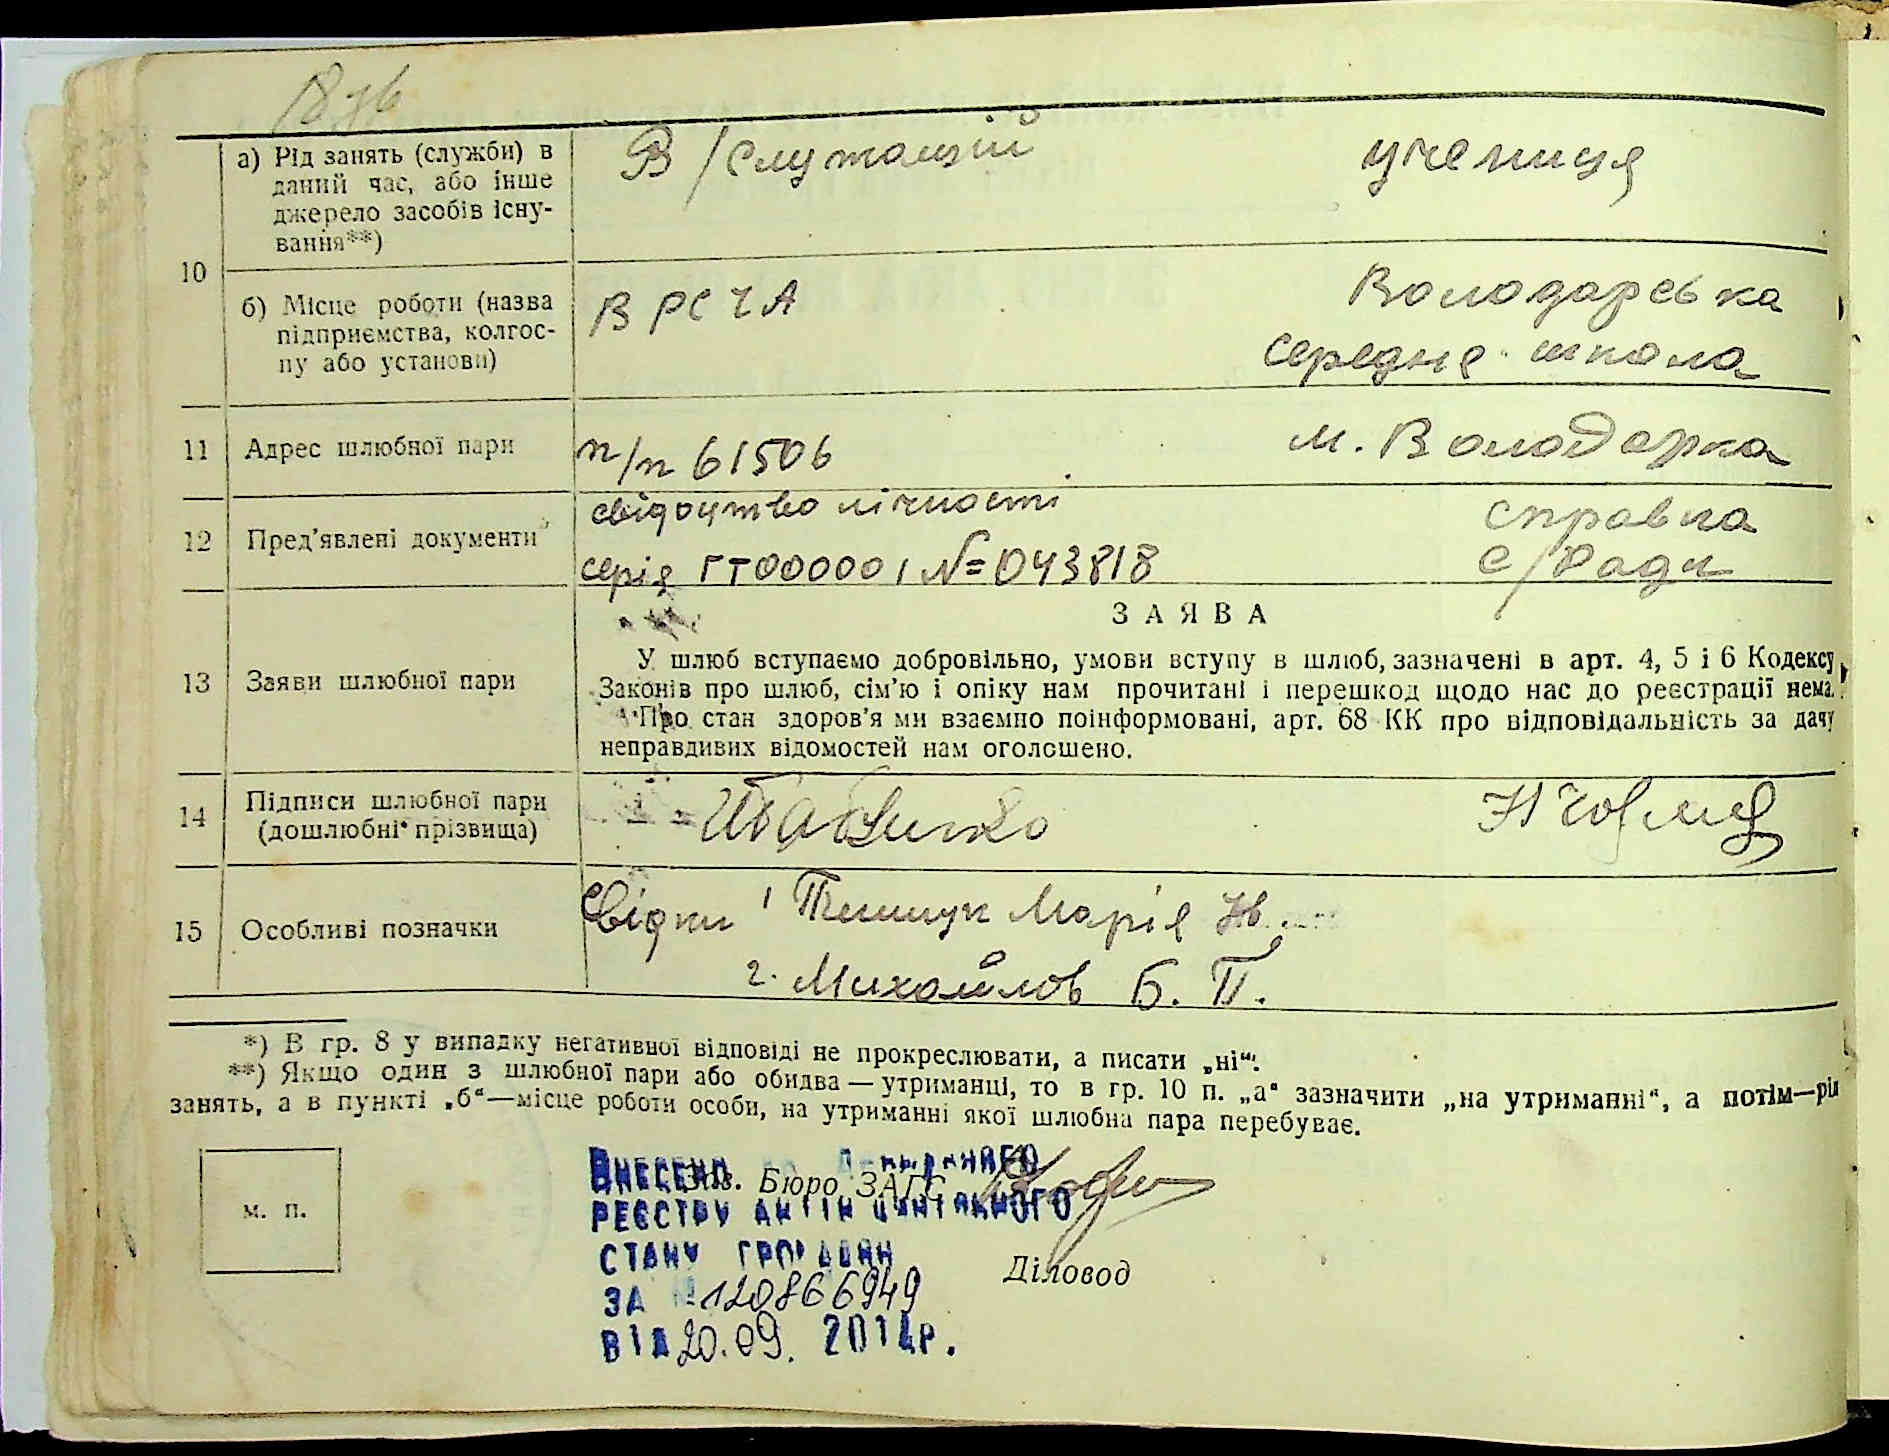 а) Рід занять (служби) в
даний час, або інше
джерело засобів існу-
вання**)
В/служащий
учениця
10
б) Місце роботи (назва
підприємства, колгос-
пу або установи)
В РСЧА
Володарська
середня школа
11
Адрес шлюбної пари
п/п 61506
м. Володарка
12
Пред’явлені документи
свідоцтво лічності
серія ГТ000001 №=043818
справка
с/Ради
ЗАЯВА
13
Заяви шлюбної пари
У шлюб вступаємо добровільно, умови вступу в шлюб, зазначені в арт. 4, 5 і 6 Кодексу
Законів про шлюб, сім’ю і опіку нам прочитані і перешкод щодо нас до реєстрації нема.
Про стан здоров’я ми взаємно поінформовані, арт. 68 КК про відповідальність за дачу
неправдивих відомостей нам оголошено.
14
Підписи шлюбної пари
(дошлюбні прізвища)
15
Особливі позначки
Свідки 1 Марія
2. Михайлов Б. П.
*) В гр. 8 у випадку негативної відповіді не прокреслювати, а писати „ні“.
**) Якщо один з шлюбної пари або обидва — утриманці, то в гр. 10 п. „а“ зазначити „на утриманні“, а потім—рід
занять, а в пункті „б“—місце роботи особи, на утриманні якої шлюбна пара перебуває.
м. п.
Зав. Бюро ЗАГС
Діловод
ВНЕСЕНО ДО ДЕРЖАВНОГО
РЕЄСТРУ АКТІВ ЦИВІЛЬНОГО
СТАНУ ГРОМАДЯН
ЗА № 120866949
ВІД 20.09. 2014р.